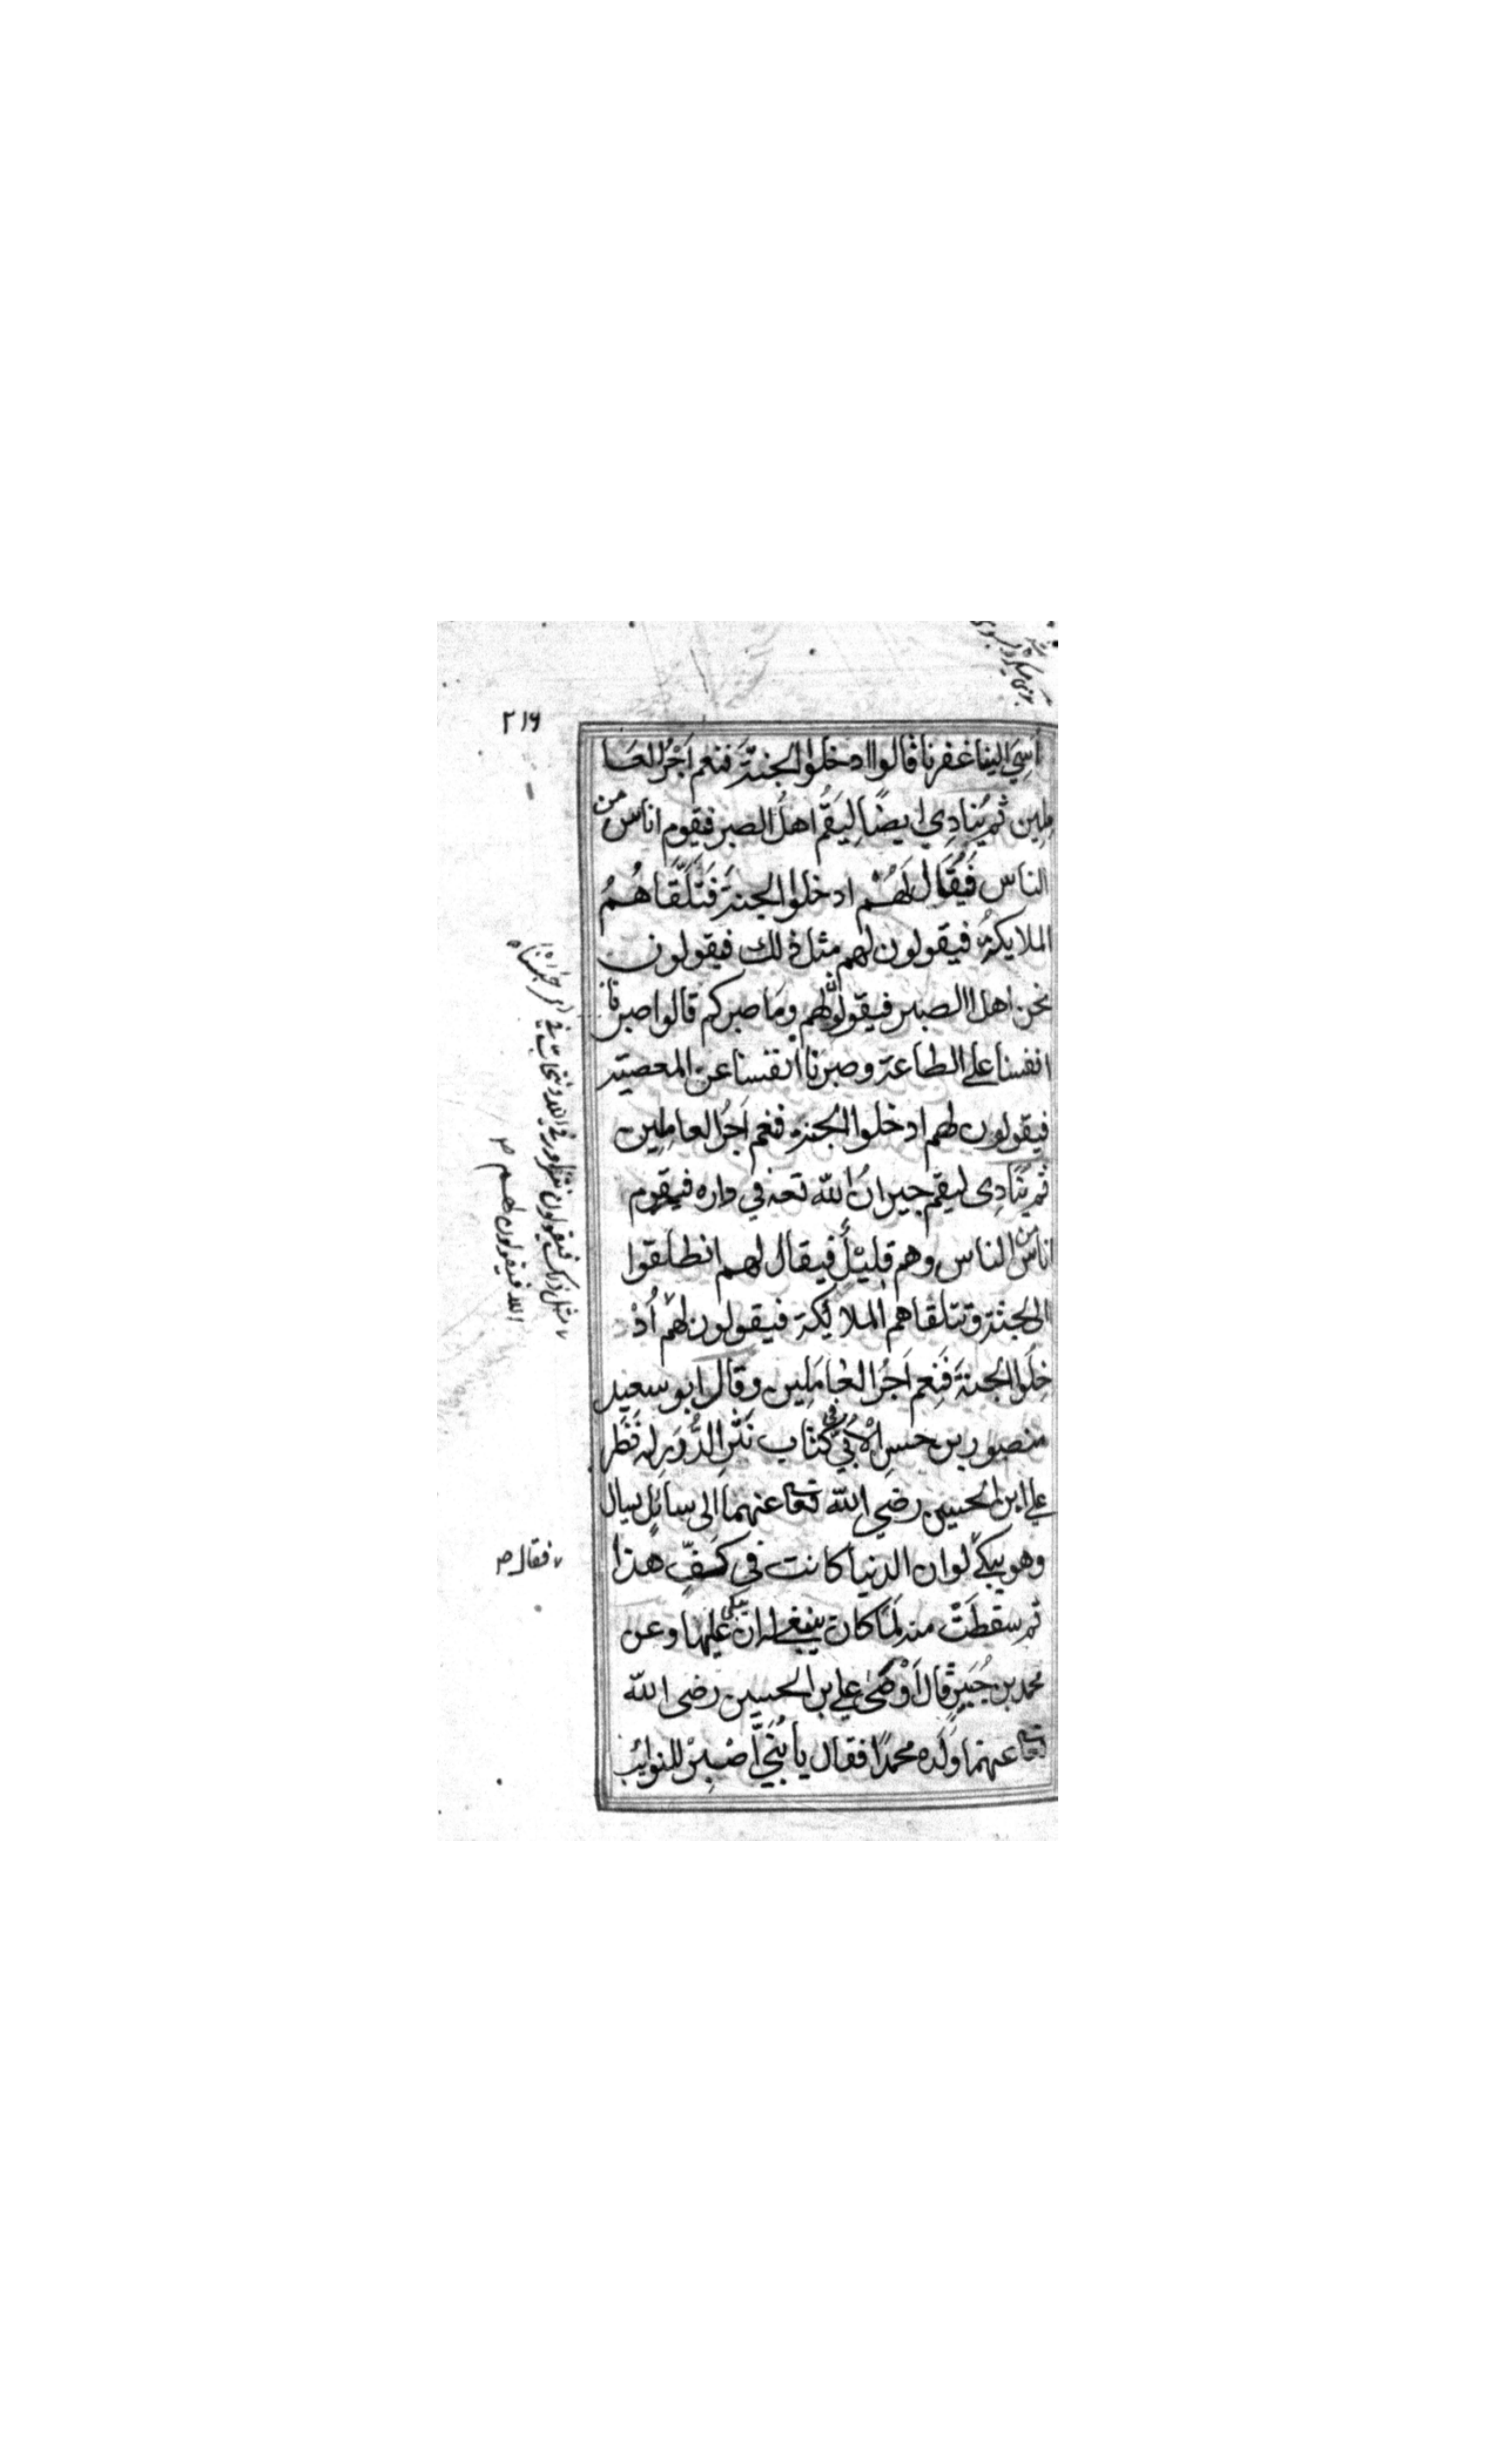 ٢١٦
اُسِيَ الينا غفرنا قالوا ادخلوا الجنة فنعم اَجْرُ العا
مِلِين ثم يُنادِي ايضًا لِيَقُم اهلُ الصبر فيقوم اناس من
الناس فَيُقَال لَهُمْ ادخلوا الجنة فَتَلَقَّاهُمُ
الملايكةُ فيقولون لهم مثل ذلك فيقولون
نحن اهل الصبر فيقولون لهم وما صبركم قالوا صبرنا
انفسنا على الطاعة وصبرنا انفسنا عن المعصية
فيقولون لهم ادخلوا الجنة فنعم اَجرُ العاملِين
ثم يُنَادِى ليقم جيرانُ الله تعه في داره فيقوم
اناس من الناس وهم قليلٌ فيقال لهم انطلقوا
الى الجنة وتتلقاهم الملايكة فيقولون لهم اُدْ
خِلُوا الجنةَ فَنِعم اَجرُ العٰامَلِين وقال ابو سعيد
منصور بن حسن الْآبِيُّ في كتاب نَثْرِ الدُّرَرِ له نَظَر
على ابن الحسين رضي الله تعا عنهما الى سائلٍ يسال
وهو يبكى لو ان الدنيا كانت في كَفِّ هذا
ثم سقطَتْ منه لَمَا كان ينبغي له ان يبكي عليها وعن
محمد بن جُبَيرٍ قال اَوْصَىٰ علي بن الحسين رضى الله
تعا عنهما وَلَده محمدًا فقال يا بُنَيَّ اصْبِرْ للنوايُب
مثل ذلك فيقولون نتزاور في الله ونتحاب في
الله فيقولون لهم ص
فقال ص